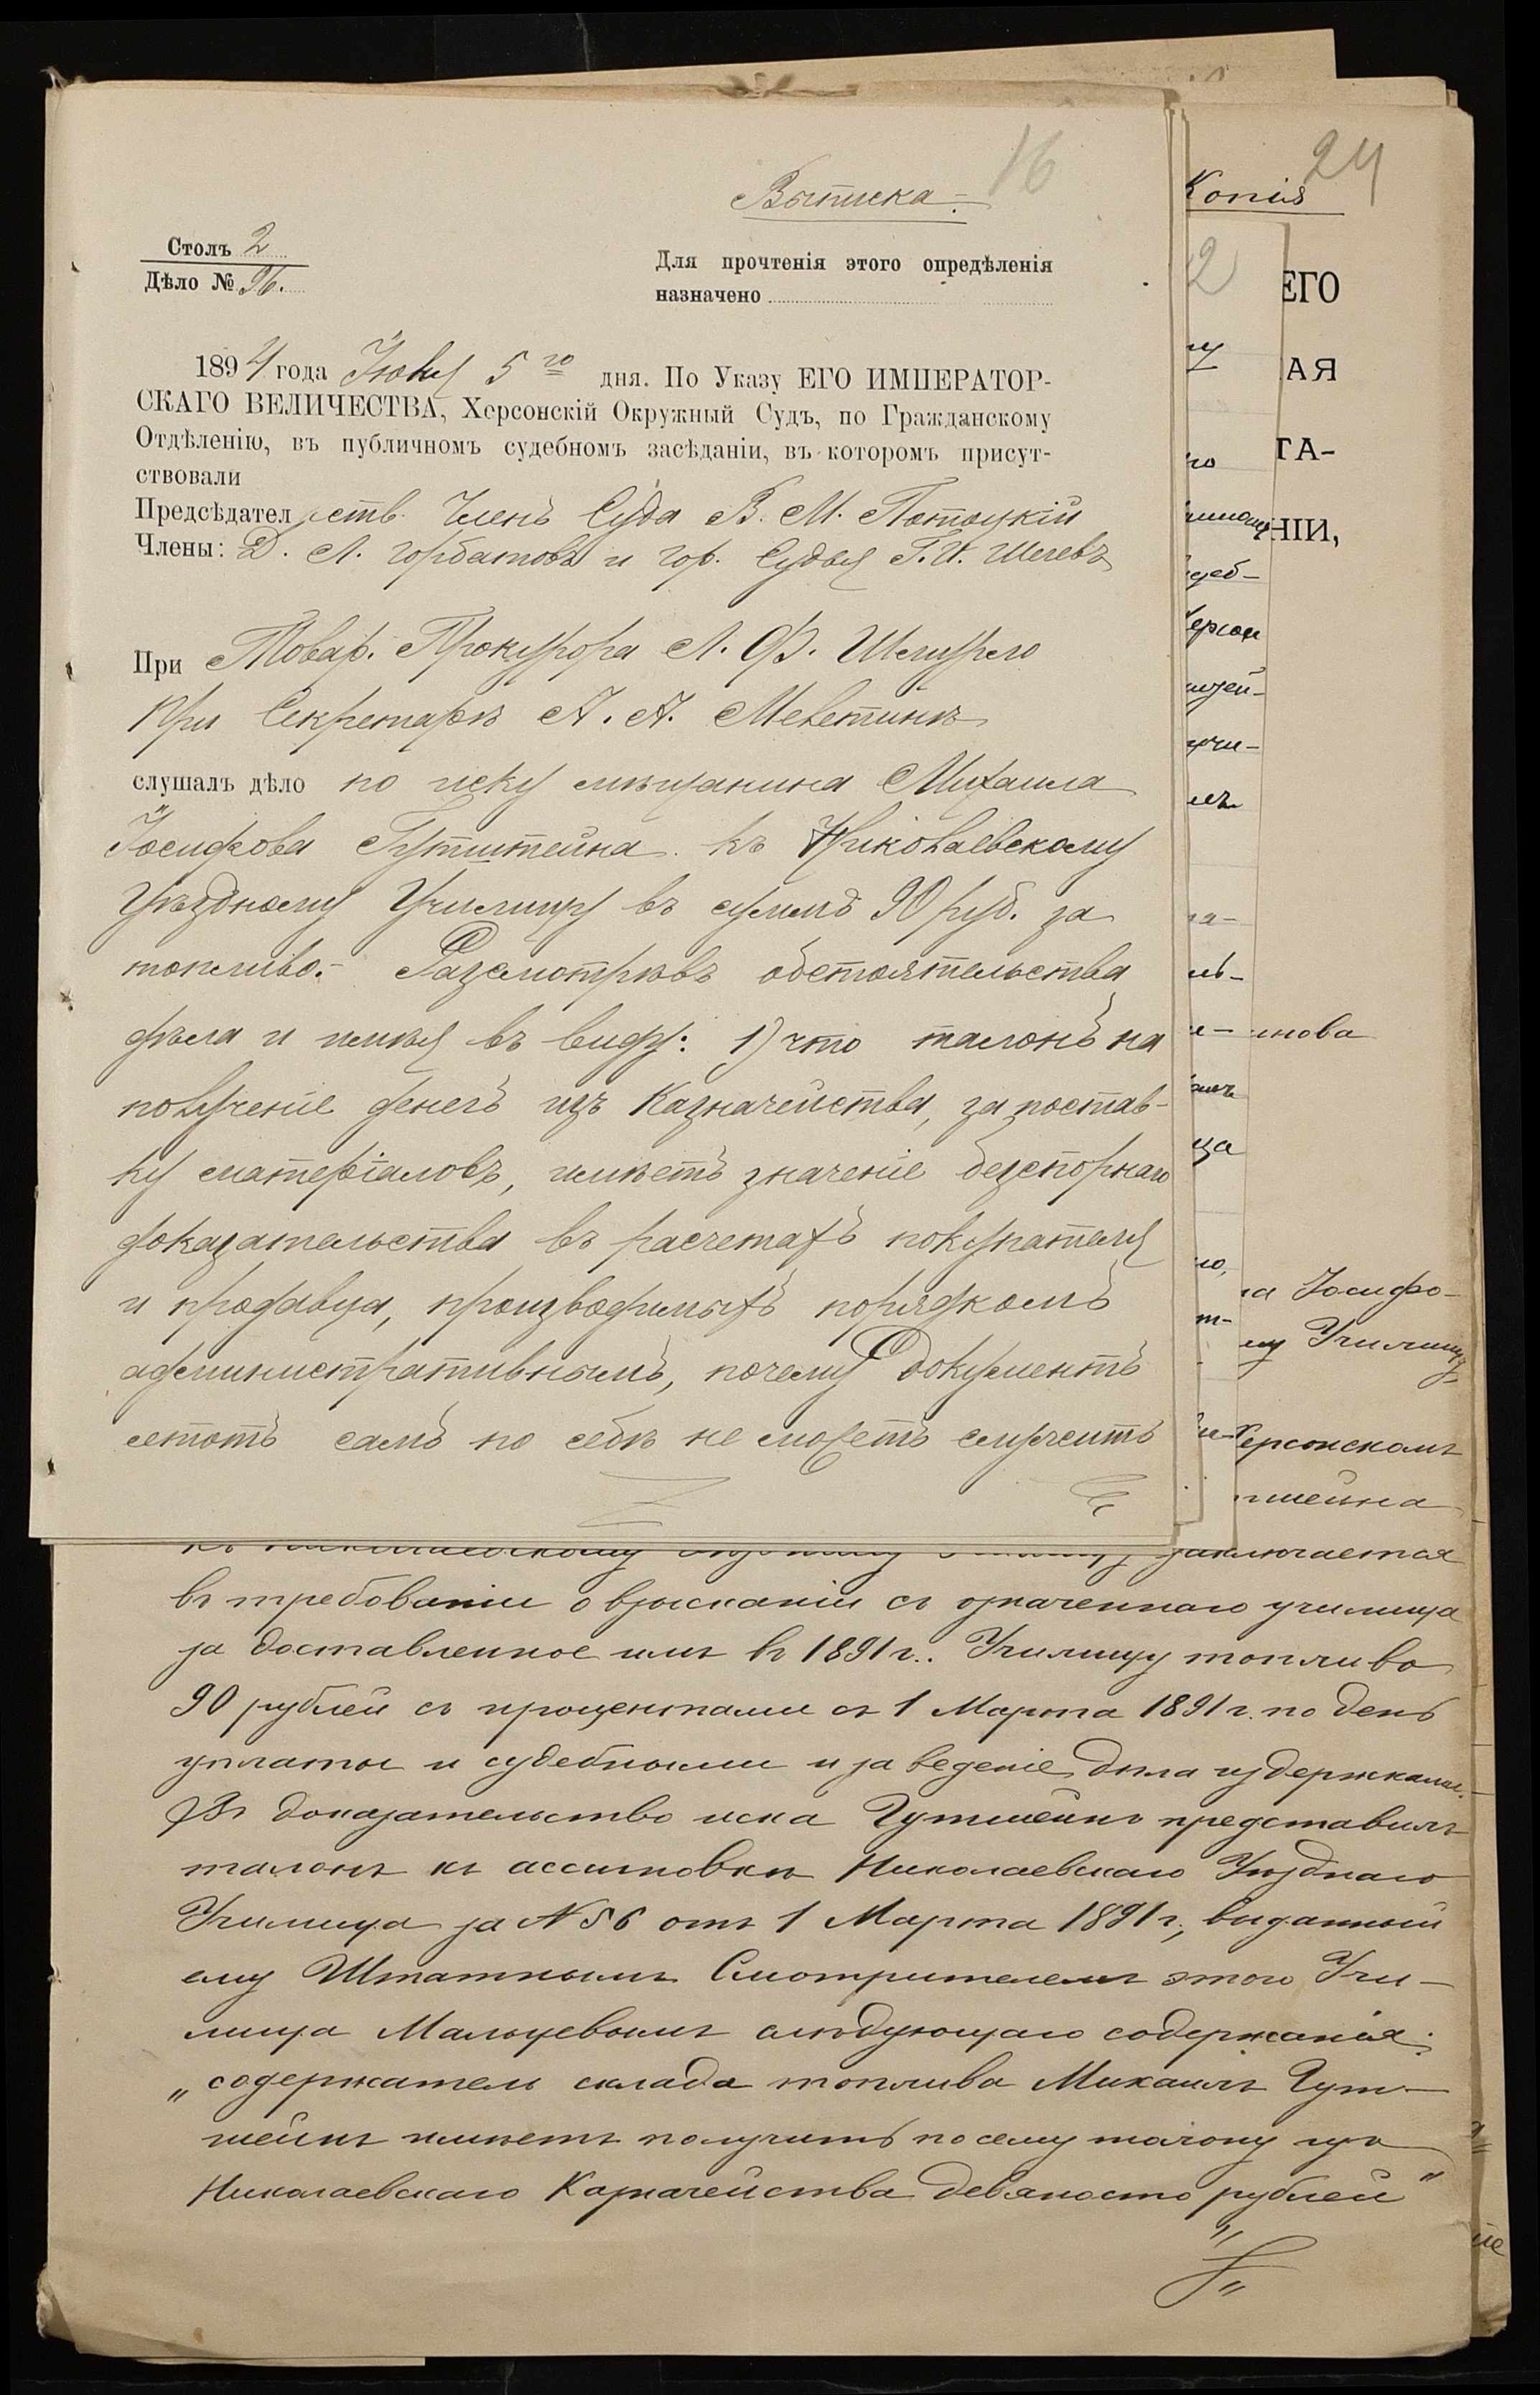 16
Выписка.
Столъ 2
Дѣло № 96.
Для прочтенія этого опредѣленія
назначено
1894 года Іюня 5го дня. По Указу ЕГО ИМПЕРАТОР-
СКАГО ВЕЛИЧЕСТВА, Херсонскій Окружный Судъ, по Гражданскому
Отдѣленію, въ публичномъ судебномъ засѣданіи, въ которомъ присут-
ствовали
Предсѣдательств. Членъ Суда В. М. Потоцкій
Члены: Д. Л. Горбатовъ и Гор. Судья Г. И.
При Товар. Прокурора Л. Ф.
При Секретарѣ А. А.
слушалъ дѣло по иску мѣщанина Михаила
Іосифова Гутштейна къ Николаевскому
Уѣздному Училищу въ суммѣ 90 руб. за
топливо.- Разсмотрѣвъ обстоятельства
дѣла и имѣя въ виду: 1) что талонъ на
полученіе денегъ изъ Казначейства, за постав-
ку матеріаловъ, имѣетъ значеніе безспорнаго
доказательства въ расчетахъ покупателя
и продавца, производимыхъ порядкомъ
административнымъ, почему документъ
этотъ самъ по себѣ не можетъ служить
24
Копія
2
ЕГО
АЯ
ТА-
НІИ,
инова
на Іосифо-
му Училищу
Херсонскомъ
тшейна
къ Николаевскому Уѣздному Училищу заключается
въ требованіи о взысканіи съ означеннаго училища
за доставленное имъ въ 1891 г. Училищу топливо
90 рублей съ процентами съ 1 Марта 1891 г. по день
уплаты и судебными и за веденіе дѣла издержками.
Въ доказательство иска Гутшейнъ представилъ
талонъ къ ассигновкѣ Николаевскаго Уѣзднаго
Училища за № 56 отъ 1 Марта 1891 г., выданный
ему Штатнымъ Смотрителемъ этого Учи-
лища Мальцевымъ слѣдующаго содержанія:
„содержатель склада топлива Михаилъ Гут-
шейнъ имѣетъ получить по сему талону изъ
Николаевскаго Казначейства девяносто рублей"